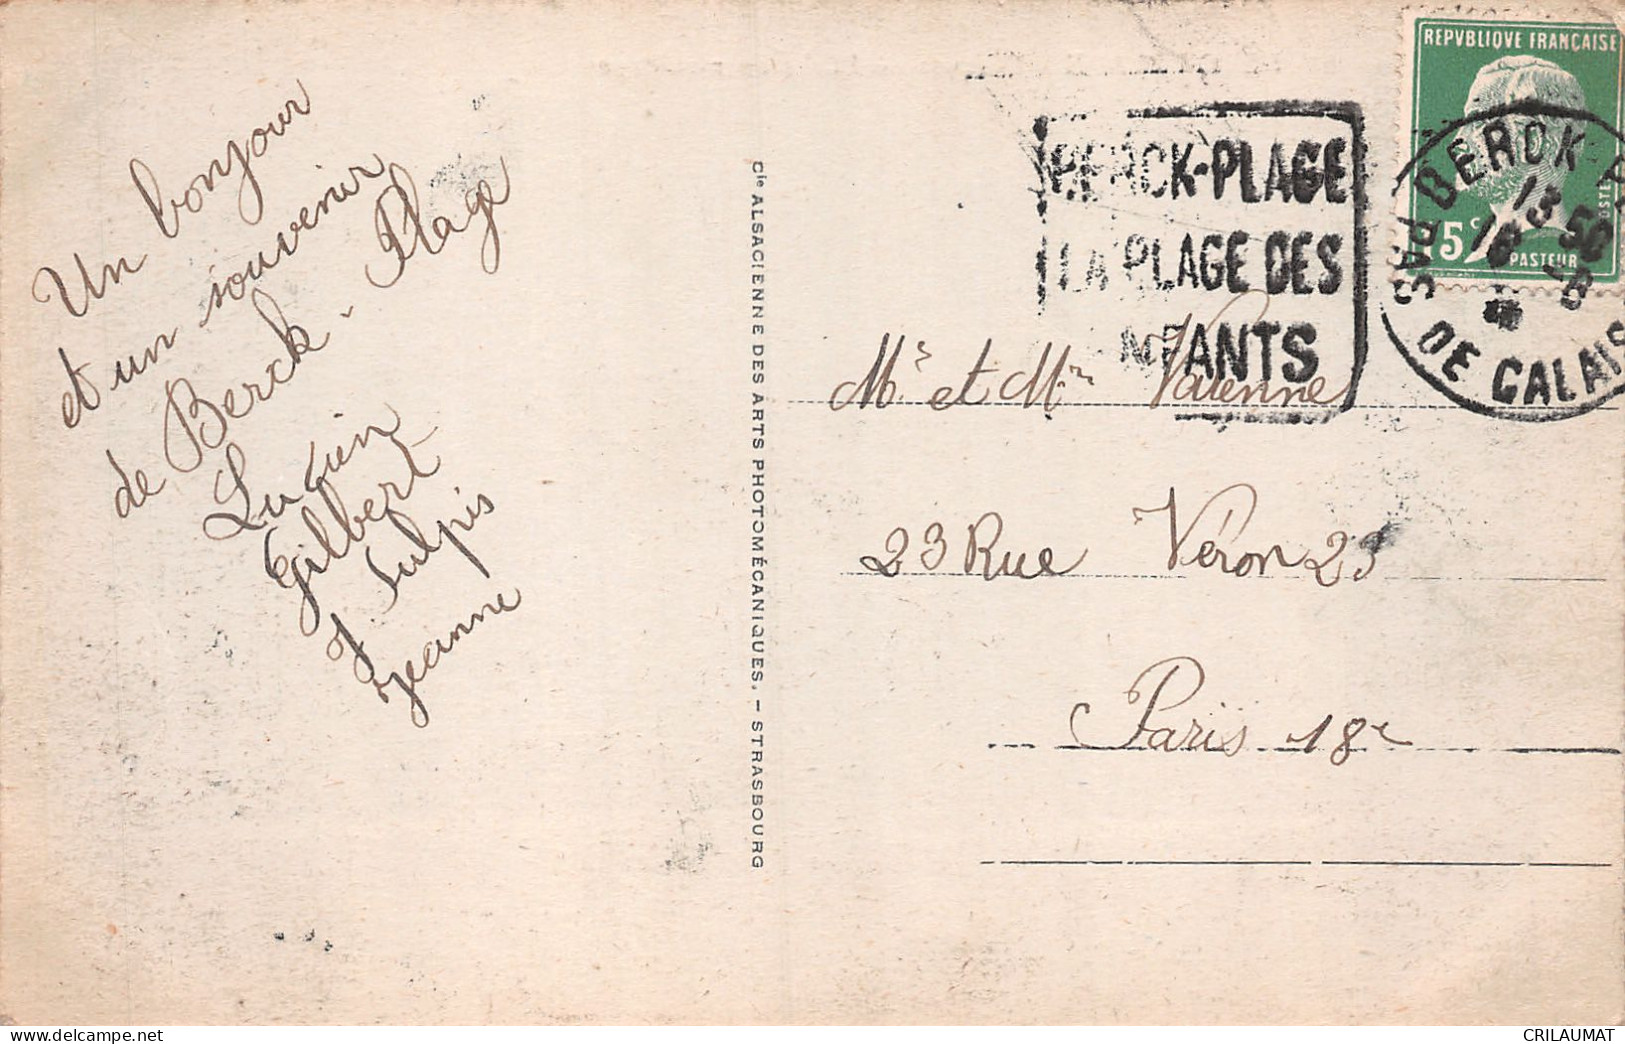 Un bonjour
et un souvenir
de Berck-Plage
Lucien
Gilbert
J. Sulpis
Jeanne
Cie ALSACIENNE DES ARTS PHOTOMÉCANIQUES. – STRASBOURG
BERCK-PLAGE
LA PLAGE DES
NFANTS
REPVBLIQVE FRANÇAISE
POSTES
15c
PASTEUR
BERCK P
13 50
18 -8
PAS DE CALAIS
Mr et Mme Varenne
23 Rue Véron 23
Paris 18e
CRILAUMAT